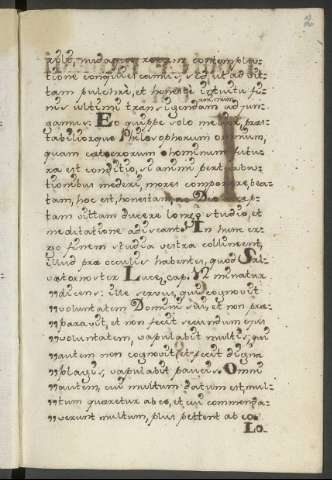 volo, nudam rerum contemplationem
tione coniuet animus, sed ut ad vi-
tam pulchre, et honeste instituti fi-
nis ultimi transigendam adjun-
gamus: Eo quippe volo melior, præ-
stabiliorque Philosophorum omnium,
quam cæterorum hominum futu-
ra est conditio, si animi perturba-
tionibus mederi, mores componere, bea-
tam, hoc est, honestam,
tam vittam ducere longo studio, et
meditatione adiscant. In hunc er-
go finem studia vestra collinient,
illud præ occulis habentes, quod Sal-
vator noster Lucæ, cap. 12 minatur
"dicens: ille servus, qui cognovit
"voluntatem Domini sui, et non præ-
"paravit, et non fecit secundum ejus
"voluntatem, vapulabit multis; qui
"autem non cognovit, et fecit digna
"plagis, vapulabit paucis. Omni
"autem, cui multum datum est, mul-
"tum quæretur ab eo, et cui commenda-
"verunt multum, plus pettent ab eo.
Lo-